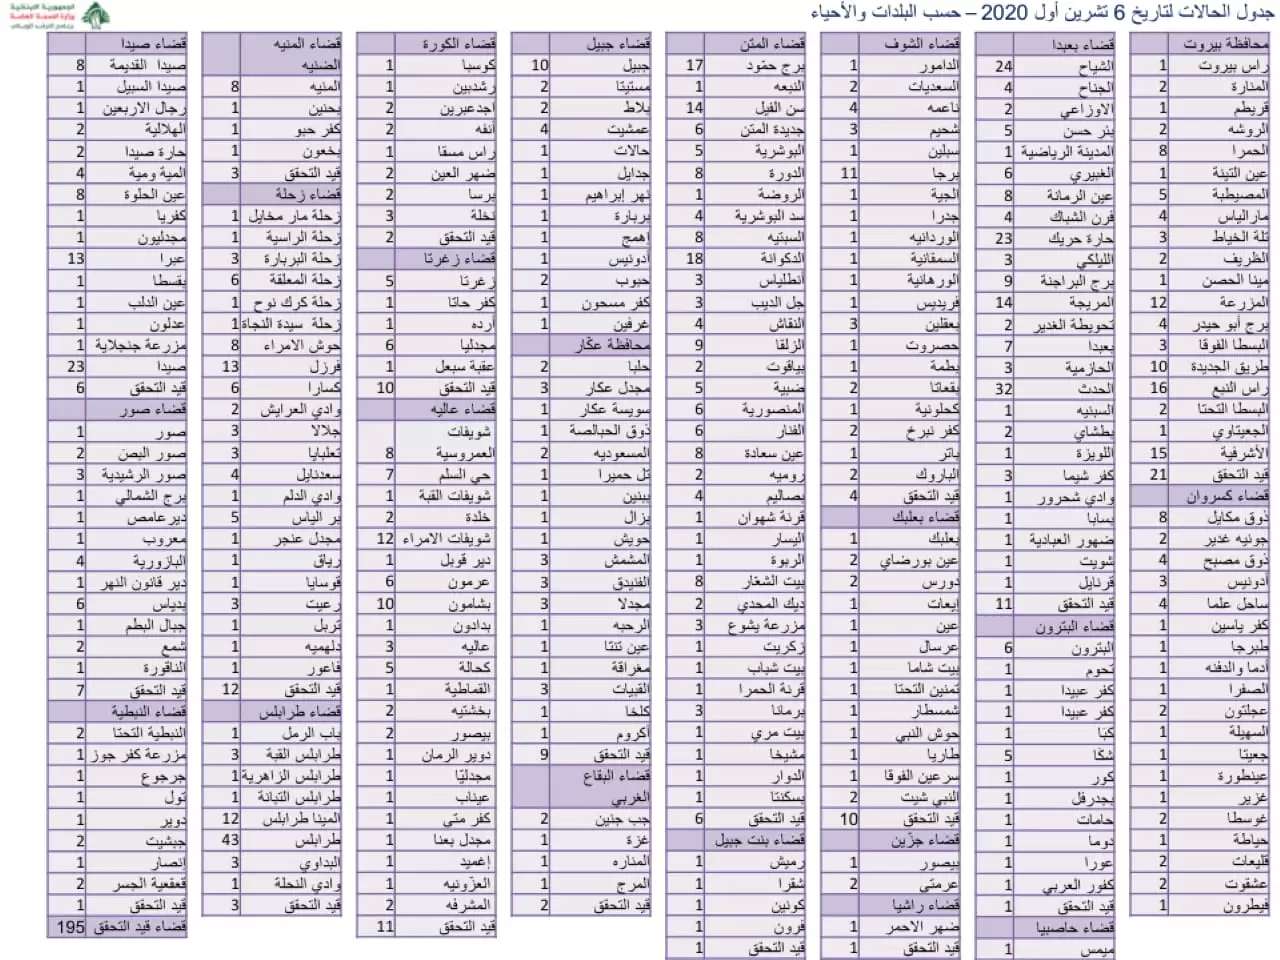 جدول الحالات لتاريخ 6 تشرين أول 2020 – حسب البلدات والأحياء
الجمهورية اللبنانية
وزارة الصحة العامة
محافظة بيروت
راس بيروت 1
المنارة 2
قريطم 1
الروشه 2
الحمرا 8
عين التينة 1
المصيطبة 5
مارالياس 4
تلة الخياط 3
الظريف 2
مينا الحصن 1
المزرعة 12
برج أبو حيدر 4
البسطا الفوقا 3
طريق الجديدة 10
راس النبع 16
البسطا التحتا 2
الجعيتاوي 1
الأشرفية 15
قيد التحقق 21
قضاء كسروان
ذوق مكايل 8
جونيه غدير 2
ذوق مصبح 4
أدونيس 3
ساحل علما 4
كفر ياسين 1
طبرجا 1
أدما والدفنه 1
الصفرا 1
عجلتون 2
السهيلة 1
جعيتا 1
عينطورة 1
غزير 1
غوسطا 2
حياطة 1
قليعات 2
عشقوت 2
فيطرون 1
قضاء بعبدا
الشياح 24
الجناح 4
الاوزاعي 2
بئر حسن 5
المدينة الرياضية 1
الغبيري 6
عين الرمانة 8
فرن الشباك 4
حارة حريك 23
الليلكي 3
برج البراجنة 9
المريجة 14
تحويطة الغدير 2
بعبدا 7
الحازمية 3
الحدث 32
السبنيه 1
بطشاي 2
اللويزة 1
كفر شيما 3
وادي شحرور 1
بسابا 1
ضهور العبادية 1
شويت 1
قرنايل 1
قيد التحقق 11
قضاء البترون
البترون 6
تحوم 1
كفر عبيدا 1
كفر عبيدا 1
كبّا 1
شكّا 5
كور 1
بجدرفل 1
حامات 1
دوما 1
عورا 1
كفور العربي 1
قيد التحقق 1
قضاء حاصبيا
ميمس 1
قضاء الشوف
الدامور 1
السعديات 2
ناعمه 4
شحيم 3
سبلين 1
برجا 11
الجية 1
جدرا 1
الوردانيه 1
السمقانية 1
الورهانية 1
فريديس 1
بعقلين 3
حصروت 1
بطمة 1
بقعاتا 2
كحلونية 1
كفر نبرخ 2
باتر 1
الباروك 2
قيد التحقق 4
قضاء بعلبك
بعلبك 1
عين بورضاي 2
دورس 2
إيعات 1
عين 1
عرسال 1
بيت شاما 1
تمنين التحتا 1
شمسطار 1
حوش النبي 1
طاريا 1
سرعين الفوقا 1
النبي شيت 2
قيد التحقق 10
قضاء جزّين
بيصور 1
عرمتى 2
قضاء راشيا
ضهر الاحمر 1
قيد التحقق 1
قضاء المتن
برج حمّود 17
النبعه 1
سن الفيل 14
جديدة المتن 6
البوشرية 5
الدورة 8
الروضة 1
سد البوشرية 4
السبتيه 8
الدكوانة 18
أنطلياس 3
جل الديب 3
النقاش 4
الزلقا 9
بياقوت 2
ضبية 5
المنصورية 6
الفنار 6
عين سعادة 8
روميه 2
بصاليم 4
قرنة شهوان 1
اليسار 1
الربوة 1
بيت الشعّار 8
ديك المحدي 2
مزرعة يشوع 3
زكريت 1
بيت شباب 1
قرنة الحمرا 1
برمانا 3
بيت مري 1
مشيخا 1
الدوار 1
بسكنتا 1
قيد التحقق 6
قضاء بنت جبيل
رميش 1
شقرا 1
كونين 1
فرون 1
قيد التحقق 1
قضاء جبيل
جبيل 10
مستيتا 2
بلاط 2
عمشيت 4
حالات 1
جدايل 1
نهر إبراهيم 1
بربارة 1
إهمج 1
أدونيس 1
حبوب 2
كفر مسحون 1
غرفين 1
محافظة عكّار
حلبا 2
مجدل عكار 3
سويسة عكار 1
ذوق الحبالصة 1
المسعوديه 2
تل حميرا 1
ببنين 1
بزال 1
حويش 1
المشمش 3
الفنيدق 3
مجدلا 3
الرحبه 1
عين تنتا 1
مغراقة 1
القبيات 3
كلخا 1
أكروم 1
قيد التحقق 9
قضاء البقاع
الغربي
جب جنين 2
غزة 1
المناره 1
المرج 1
قيد التحقق 2
قضاء الكورة
كوسبا 1
رشدبين 1
اجدعبرين 2
أنفه 2
راس مسقا 1
ضهر العين 2
برسا 2
نخلة 3
قيد التحقق 2
قضاء زغرتا
زغرتا 5
كفر حاتا 1
أرده 1
مجدليا 6
عقبة سبعل 1
قيد التحقق 10
قضاء عاليه
شويفات
العمروسية 8
حي السلم 7
شويفات القبة 1
خلدة 2
شويفات الامراء 12
دير قوبل 1
عرمون 6
بشامون 10
بدادون 1
عاليه 3
كحالة 5
القماطية 1
بخشتيه 2
بيصور 2
دوير الرمان 1
مجدليّا 1
عيناب 1
كفر متى 1
مجدل بعنا 1
إغميد 1
العزّونيه 1
المشرفه 2
قيد التحقق 11
قضاء المنيه
الضنيه
المنيه 8
بحنين 1
كفر حبو 1
بخعون 1
قيد التحقق 3
قضاء زحلة
زحلة مار مخايل 1
زحلة الراسية 1
زحلة البربارة 3
زحلة المعلقة 6
زحلة كرك نوح 1
زحلة سيدة النجاة 1
حوش الامراء 8
فرزل 13
كسارا 6
وادي العرايش 2
جلالا 3
تعلبايا 3
سعدنايل 4
وادي الدلم 1
بر الياس 5
مجدل عنجر 1
رياق 1
قوسايا 1
رعيت 3
تربل 1
دلهميه 1
فاعور 1
قيد التحقق 12
قضاء طرابلس
باب الرمل 1
طرابلس القبة 3
طرابلس الزاهرية 1
طرابلس التبانة 1
المينا طرابلس 12
طرابلس 43
البداوي 3
وادي النحلة 1
قيد التحقق 3
قضاء صيدا
صيدا القديمة 8
صيدا السبيل 1
رجال الاربعين 1
الهلالية 2
حارة صيدا 2
المية ومية 4
عين الحلوة 8
كفريا 1
مجدليون 1
عبرا 13
بقسطا 1
عين الدلب 1
عدلون 1
مزرعة جنجلاية 1
صيدا 23
قيد التحقق 6
قضاء صور
صور 1
صور البص 2
صور الرشيدية 3
برج الشمالي 1
ديرعامص 1
معروب 1
البازورية 4
دير قانون النهر 1
بدياس 6
جبال البطم 1
شمع 2
الناقورة 1
قيد التحقق 7
قضاء النبطية
النبطية التحتا 2
مزرعة كفر جوز 1
جرجوع 1
تول 1
دوير 1
جبشيت 2
إنصار 1
قعقعية الجسر 2
قيد التحقق 1
قضاء قيد التحقق 195